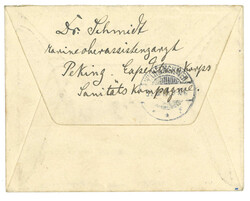 Dr. Schmidt
Marineoberassistenzarzt
Peking. Expeditionskorps
Sanitäts Kompagnie.